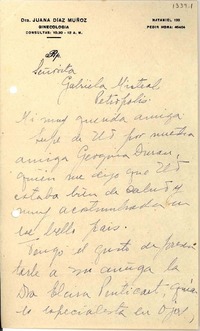 Dra. JUANA DÍAZ MUÑOZ
GINECOLOGIA
CONSULTAS: 10.30 - 12 A. M.
NATANIEL 102
PEDIR HORA: 85424
1339-1
Señorita
Gabriela Mistral
Petrópolis
Mi muy querida amiga
supe de Ud por nuestra
amiga Georgina Duran,
quién me dijo que Ud
estaba bien de salud y
muy acostumbrada en
ese bello país.
Tengo el gusto de presen
tarle a mi amiga la
Dra Elcira Pinticart, Quié
es especialista en ojos,